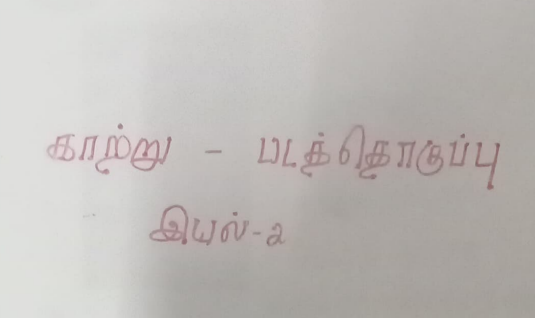 காற்று - படத்தொகுப்பு
இயல்-2